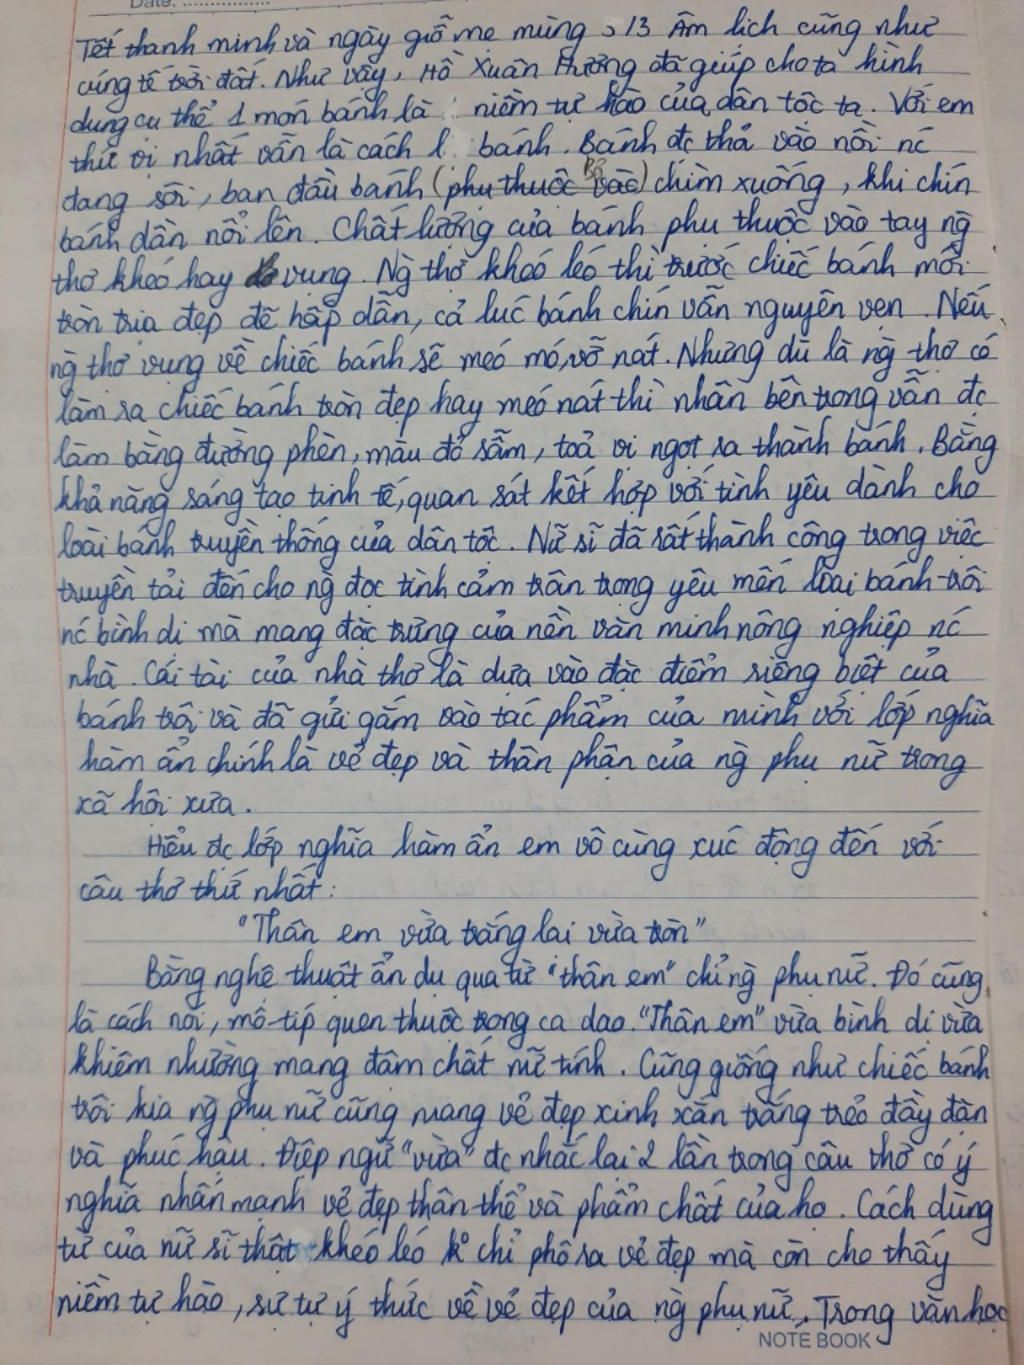 Date:
Tết thanh minh và ngày giỗ mẹ mùng 3/3 Âm lịch cũng như
cúng tế trời đất. Như vậy, Hồ Xuân Hương đã giúp cho ta hình
dung cụ thể 1 món bánh là niềm tự hào của dân tộc ta. Với em
thú vị nhất vẫn là cách l. bánh. Bánh đc thả vào nồi nc
đang sôi, ban đầu bánh (phụ thuộc vào) chìm xuống, khi chín
bánh dần nổi lên. Chất lượng của bánh phụ thuộc vào tay ng
thợ khéo hay vụng. Ng thợ khéo léo thì trước chiếc bánh mới
tròn trịa đẹp đẽ hấp dẫn, cả lúc bánh chín vẫn nguyên vẹn. Nếu
ng thợ vụng về chiếc bánh sẽ méo mó, vỡ nát. Nhưng dù là ng thợ có
làm ra chiếc bánh tròn đẹp hay méo nát thì nhân bên trong vẫn đc
làm bằng đường phèn, màu đỏ sẫm, toả vị ngọt ra thành bánh. Bằng
khả năng sáng tạo tinh tế, quan sát kết hợp với tình yêu dành cho
loài bánh truyền thống của dân tộc. Nữ sĩ đã rất thành công trong việc
truyền tải đến cho ng đọc tình cảm trân trọng yêu mến loại bánh trôi
nc bình dị mà mang đặc trưng của nền văn minh nông nghiệp nc
nhà. Cái tài của nhà thơ là dựa vào đặc điểm riêng biệt của
bánh trôi và đã gửi gắm vào tác phẩm của mình với lớp nghĩa
hàm ẩn chính là vẻ đẹp và thân phận của ng phụ nữ trong
xã hội xưa.
Hiểu đc lớp nghĩa hàm ẩn em vô cùng xúc động đến với
câu thơ thứ nhất:
"Thân em vừa trắng lại vừa tròn"
Bằng nghệ thuật ẩn dụ qua từ "thân em" chỉ ng phụ nữ. Đó cũng
là cách nói, mô-típ quen thuộc trong ca dao. "Thân em" vừa bình dị vừa
khiêm nhường mang đậm chất nữ tính. Cũng giống như chiếc bánh
trôi kia ng phụ nữ cũng mang vẻ đẹp xinh xắn trắng trẻo đầy đặn
và phúc hậu. Điệp ngữ "vừa" đc nhắc lại 2 lần trong câu thơ có ý
nghĩa nhấn mạnh vẻ đẹp thân thể và phẩm chất của họ. Cách dùng
từ của nữ sĩ thật khéo léo k° chỉ phô ra vẻ đẹp mà còn cho thấy
niềm tự hào, sự tự ý thức về vẻ đẹp của ng phụ nữ. Trong văn học
NOTE BOOK